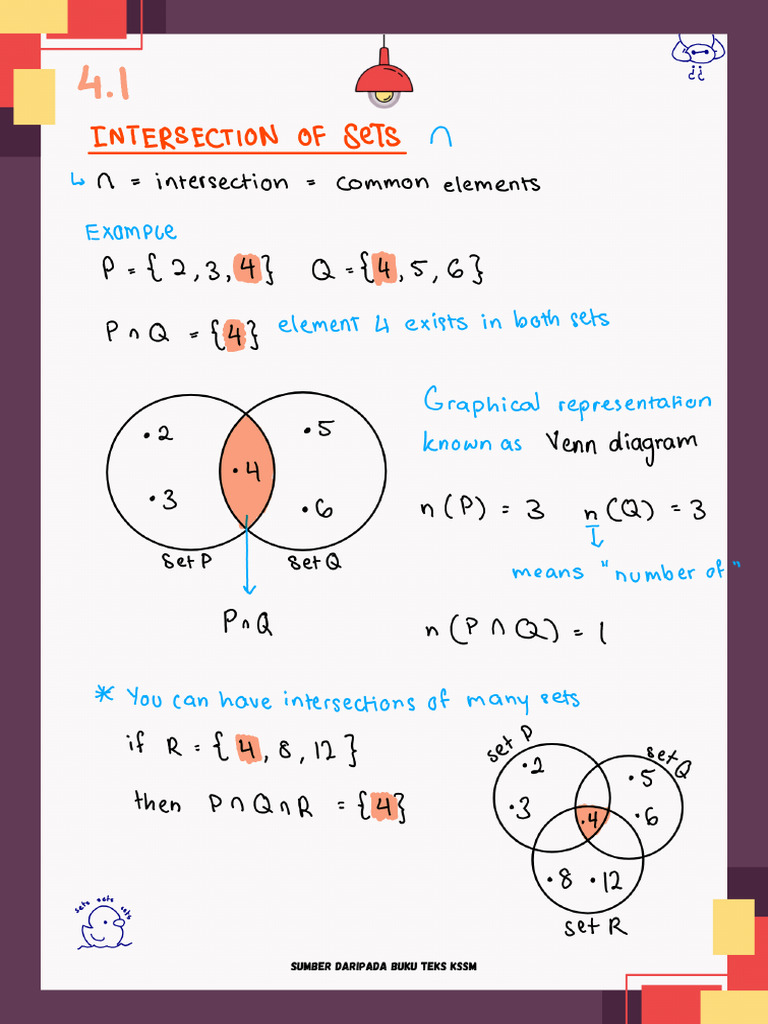 4.1
INTERSECTION OF SETS ∩
↳ ∩ = intersection = common elements
Example
P = { 2, 3, 4 } Q = { 4, 5, 6 }
P ∩ Q = { 4 } element 4 exists in both sets
Graphical representation
known as Venn diagram
• 2 • 4 • 5
• 3 • 6
set P set Q
P ∩ Q
n (P) = 3 n (Q) = 3
means "number of"
n (P ∩ Q) = 1
* You can have intersections of many sets
if R = { 4, 8, 12 }
then P ∩ Q ∩ R = { 4 }
set P set Q
• 2 • 5
• 3 • 4 • 6
• 8 • 12
set R
sets sets sets
SUMBER DARIPADA BUKU TEKS KSSM